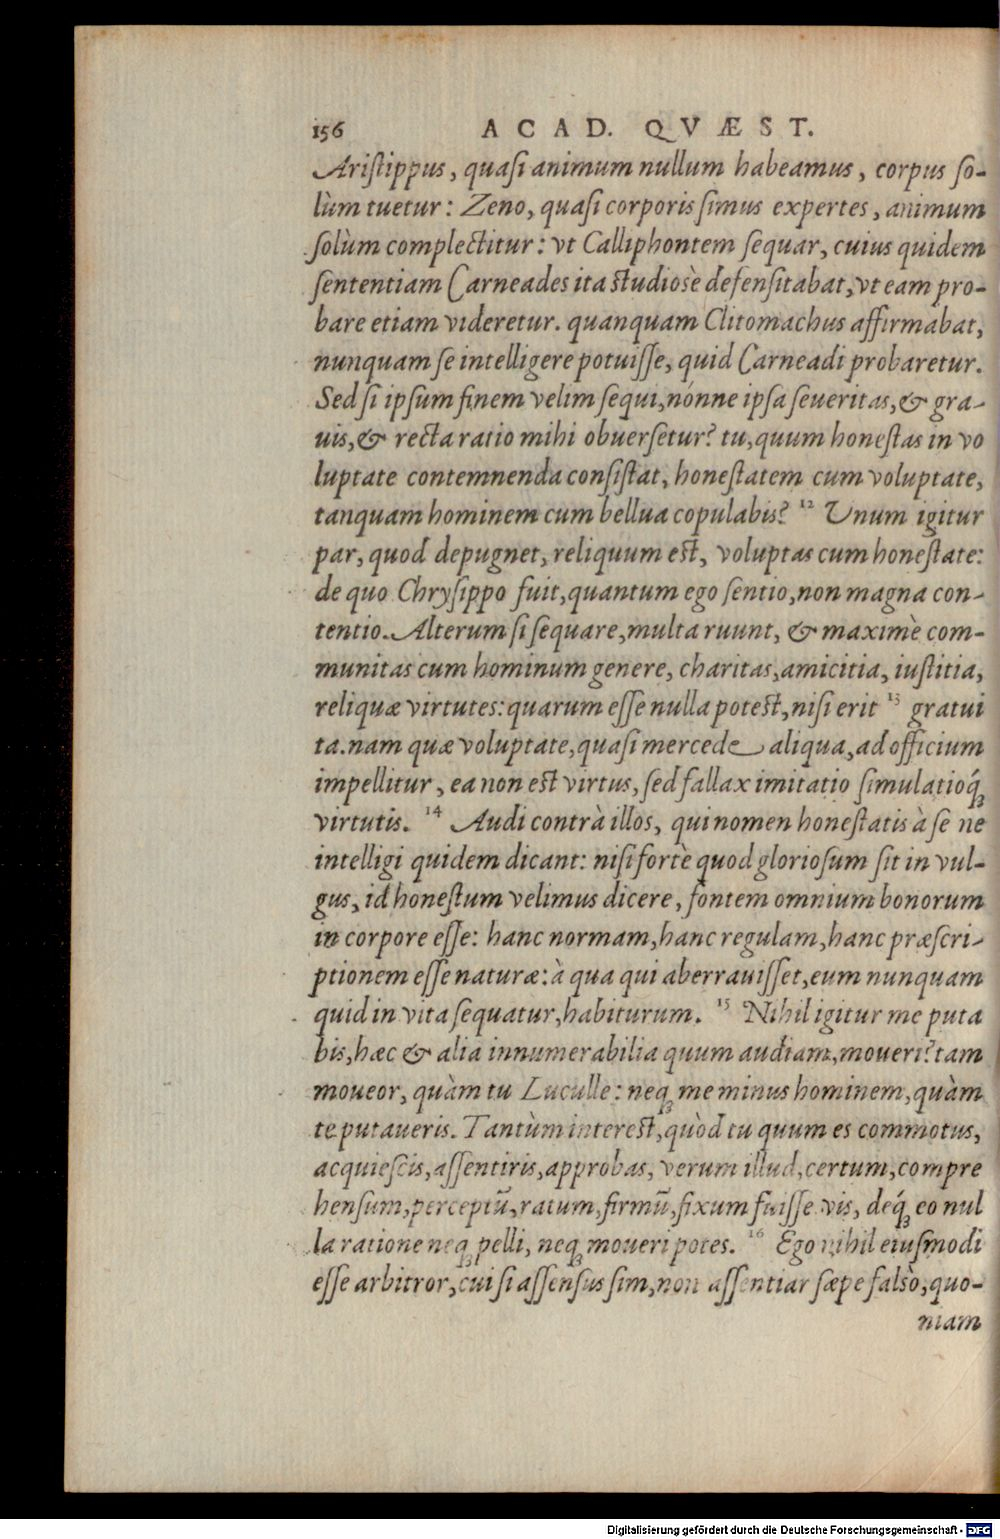 156 ACAD. QVÆST.
Aristippus, quasi animum nullum habeamus, corpus so-
lùm tuetur: Zeno, quasi corporis simus expertes, animum
solùm complectitur: vt Calliphontem sequar, cuius quidem
sententiam Carneades ita studiosè defensitabat, vt eam pro-
bare etiam videretur. quanquam Clitomachus affirmabat,
nunquam se intelligere potuisse, quid Carneadi probaretur.
Sed si ipsum finem velim sequi, nónne ipsa seueritas, & gra-
uis, & recta ratio mihi obuersetur? tu, quum honestas in vo
luptate contemnenda consistat, honestatem cum voluptate,
tanquam hominem cum bellua copulabis? 12 Unum igitur
par, quod depugnet, reliquum est, voluptas cum honestate:
de quo Chrysippo fuit, quantum ego sentio, non magna con-
tentio. Alterum si sequare, multa ruunt, & maximè com-
munitas cum hominum genere, charitas, amicitia, iustitia,
reliquæ virtutes: quarum esse nulla potest, nisi erit 13 gratui
ta. nam quæ voluptate, quasi mercede aliqua, ad officium
impellitur, ea non est virtus, sed fallax imitatio simulatioq́;
virtutis. 14 Audi contrà illos, qui nomen honestatis à se ne
intelligi quidem dicant: nisi fortè quod gloriosum sit in vul-
gus, id honestum velimus dicere, fontem omnium bonorum
in corpore esse: hanc normam, hanc regulam, hanc præscri-
ptionem esse naturæ: à qua qui aberrauisset, eum nunquam
quid in vita sequatur, habiturum. 15 Nihil igitur me puta
bis, hæc & alia innumerabilia quum audiam, moueri? tam
moueor, quàm tu Luculle: neq; me minus hominem, quàm
te putaueris. Tantùm interest, quòd tu quum es commotus,
acquiescis, assentiris, approbas, verum illud, certum, compre
hensum, perceptũ, ratum, firmũ, fixum fuisse vis, deq́; eo nul
la ratione neq; pelli, neq; moueri potes. 16 Ego nihil eiusmodi
esse arbitror, cui si assensus sim, non assentiar sæpe falsò, quo-
niam
Digitalisierung gefördert durch die Deutsche Forschungsgemeinschaft - DFG